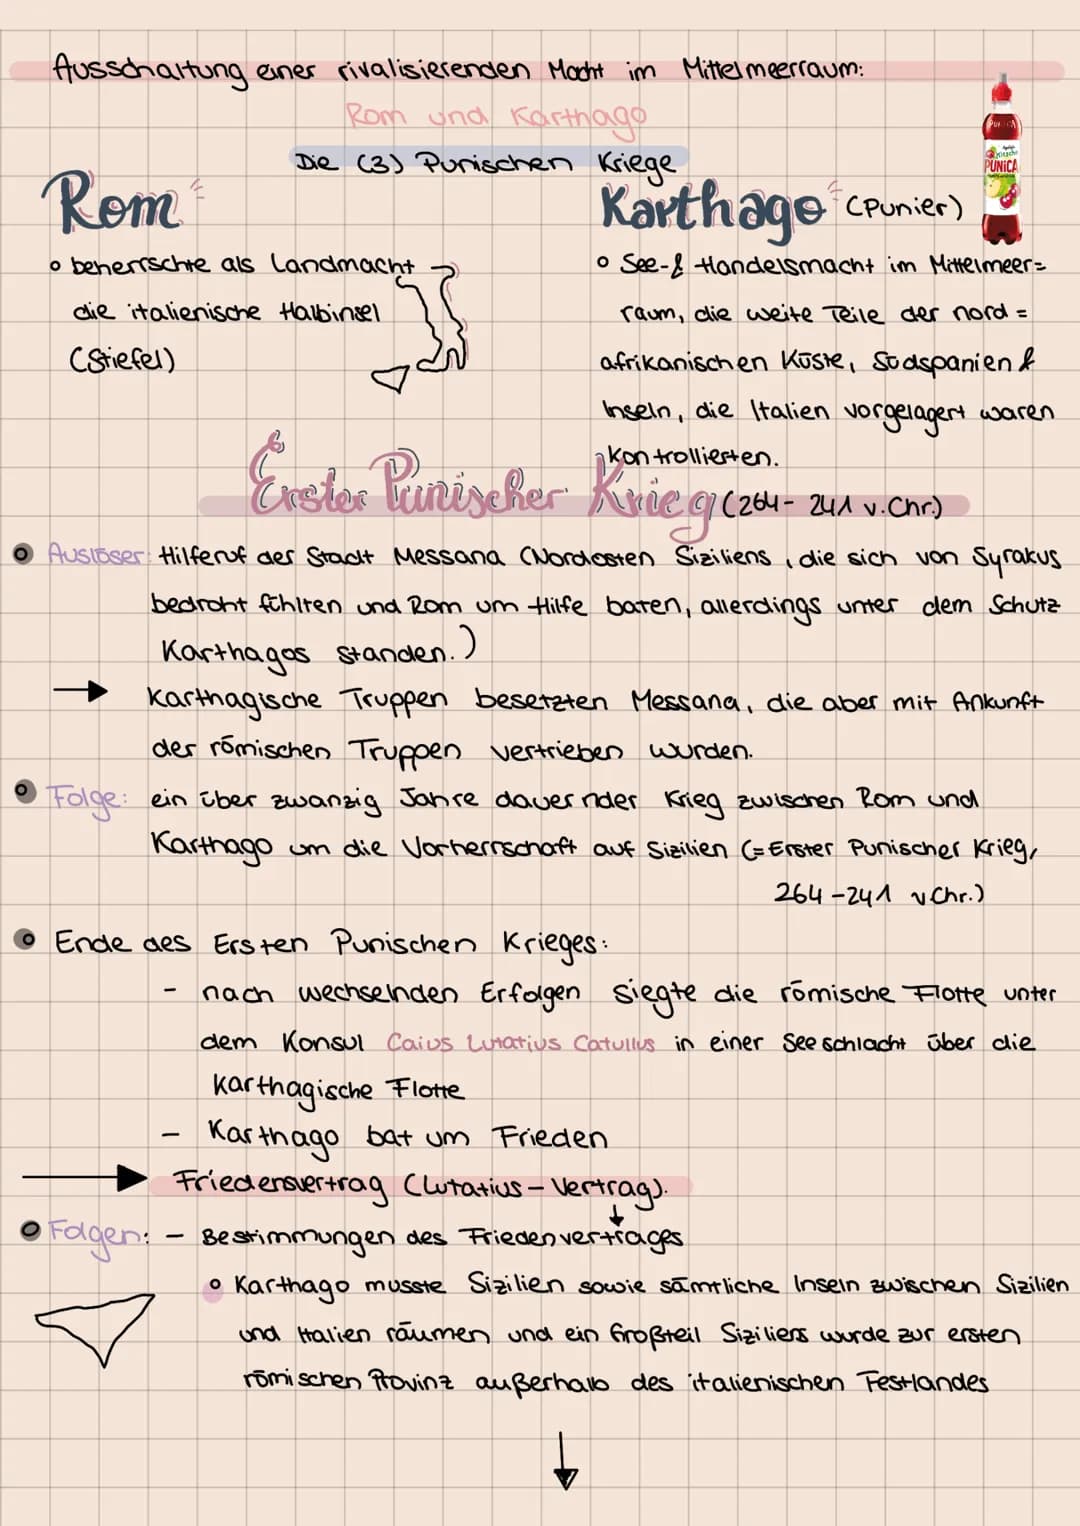 Ausschaltung einer rivalisierenden Macht im Mittelmeerraum:
Rom und Karthago
Die (3) Punischen Kriege
Rom
Karthago (Punier)
PUNICA
PUNICA
° beherrschte als Landmacht
die italienische Halbinsel
(Stiefel)
° See- & Handelsmacht im Mittelmeer=
raum, die weite Teile der nord=
afrikanischen Küste, Südspanien &
Inseln, die Italien vorgelagert waren
kontrollierten.
Erster Punischer Krieg (264- 241 v.Chr.)
Auslöser: Hilferuf der Stadt Messana (Nordosten Siziliens, die sich von Syrakus
bedroht fühlten und Rom um Hilfe baten, allerdings unter dem Schutz
Karthagos standen.)
→ Karthagische Truppen besetzten Messana, die aber mit Ankunft
der römischen Truppen vertrieben wurden.
Folge: ein über zwanzig Jahre dauernder Krieg zwischen Rom und
Karthago um die Vorherrschaft auf Sizilien (=Erster Punischer Krieg,
264-241 v.Chr.)
Ende des Ersten Punischen Krieges:
- nach wechselnden Erfolgen siegte die römische Flotte unter
dem Konsul Caius Lutatius Catullus in einer Seeschlacht über die
karthagische Flotte
- Karthago bat um Frieden
→ Friedensvertrag (Lutatius-Vertrag).
↓
Folgen: - Bestimmungen des Friedenvertrages
° Karthago musste Sizilien sowie sämtliche Inseln zwischen Sizilien
und Italien räumen und ein Großteil Siziliens wurde zur ersten
römischen Provinz außerhalb des italienischen Festlandes
↓